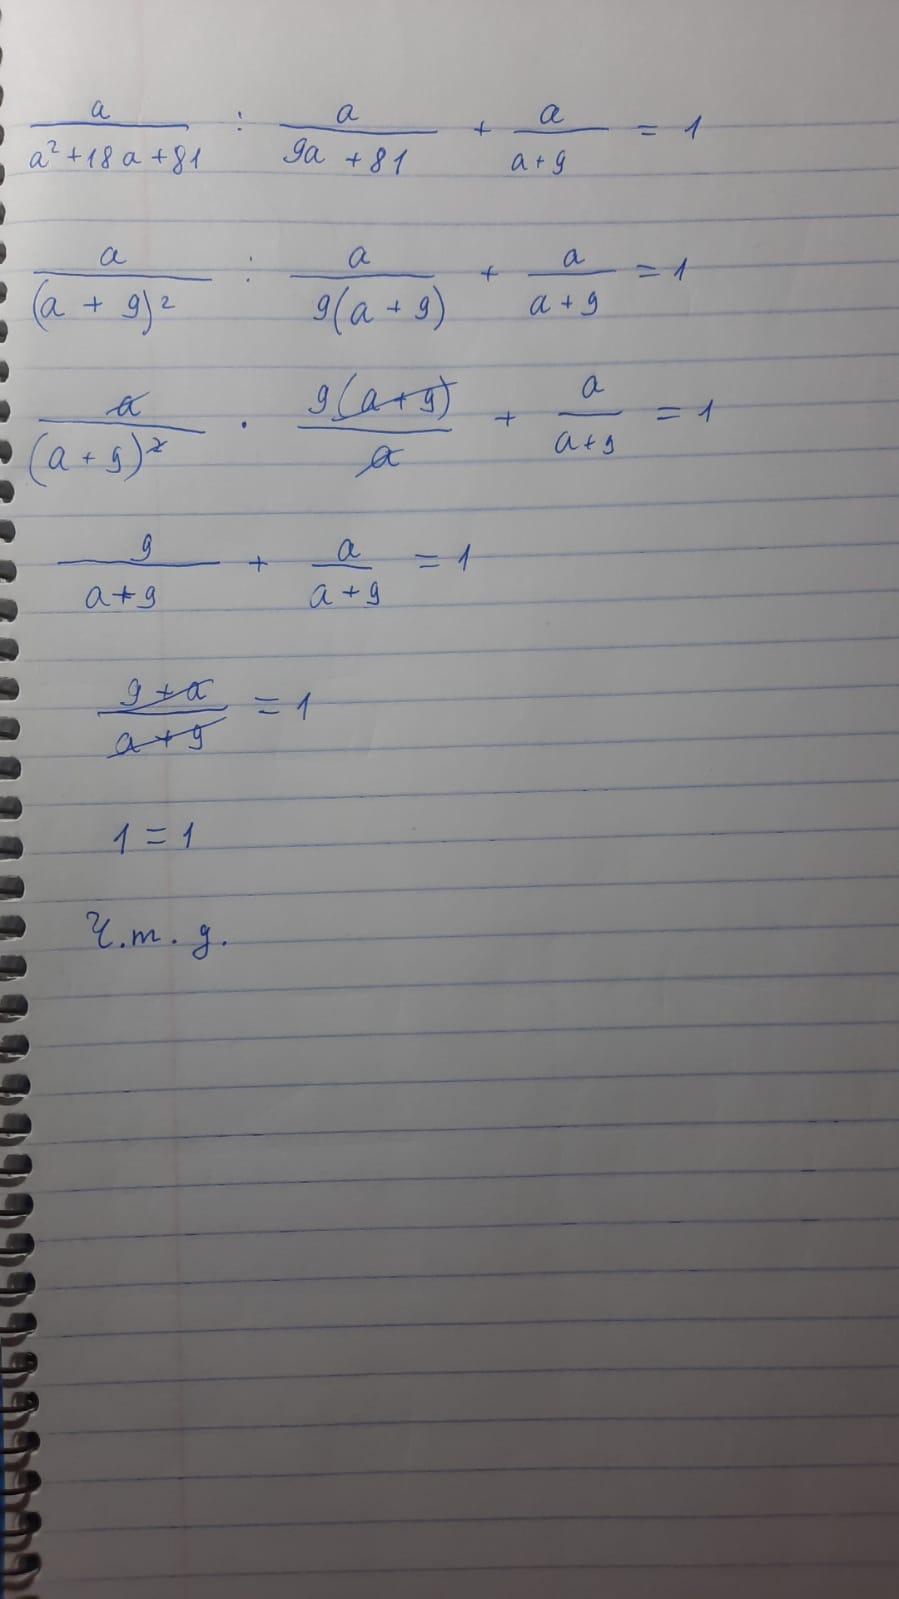 a/(a²+18a+81) : a/(9a+81) + a/(a+9) = 1
a/(a+9)² : a/(9(a+9)) + a/(a+9) = 1
a/(a+9)² · 9(a+9)/a + a/(a+9) = 1
9/(a+9) + a/(a+9) = 1
(9+a)/(a+9) = 1
1 = 1
Ч.т.д.